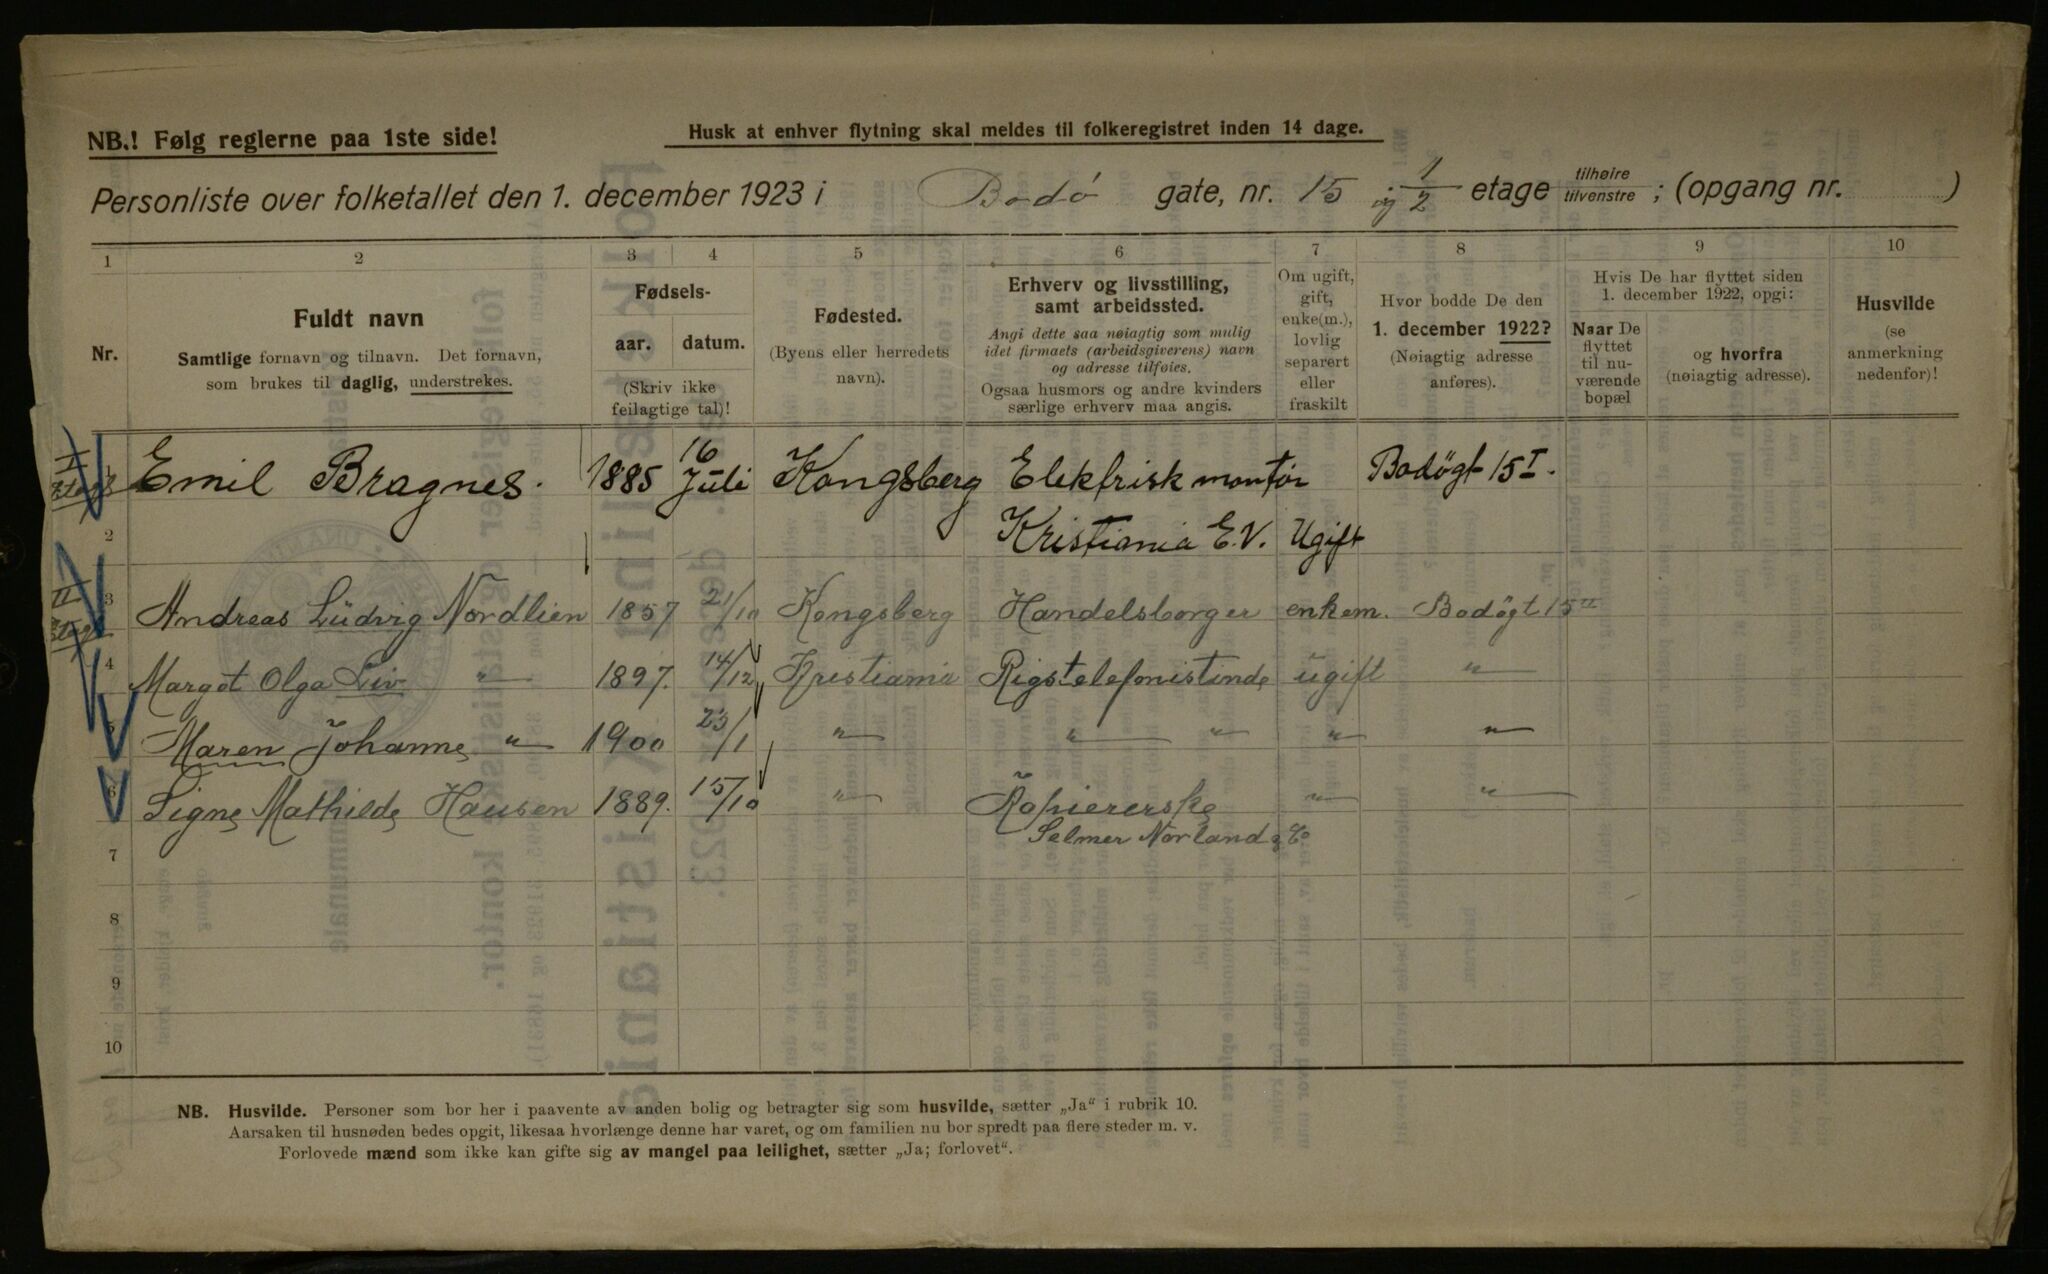 NB.! Følg reglerne paa 1ste side!
Husk at enhver flytning skal meldes til folkeregistret inden 14 dage.
Personliste over folketallet den 1. december 1923 i Bodø gate, nr. 15 og 1/2 etage tilhøire tilvenstre ; (opgang nr. )
1 2 3 4 5 6 7 8 9 10
Nr.
Fuldt navn
Samtlige fornavn og tilnavn. Det fornavn,
som brukes til daglig, understrekes.
Fødsels-
aar. datum.
(Skriv ikke
feilagtige tal)!
Fødested.
(Byens eller herredets
navn).
Erhverv og livsstilling,
samt arbeidssted.
Angi dette saa nøiagtig som mulig
idet firmaets (arbeidsgiverens) navn
og adresse tilføies.
Ogsaa husmors og andre kvinders
særlige erhverv maa angis.
Om ugift,
gift,
enke(m.),
lovlig
separert
eller
fraskilt
Hvor bodde De den
1. december 1922?
(Nøiagtig adresse
anføres).
Hvis De har flyttet siden
1. december 1922, opgi:
Naar De
flyttet
til nu-
værende
bopæl
og hvorfra
(nøiagtig adresse).
Husvilde
(se
anmerkning
nedenfor)!
I etage Emil Bragnes. 1885 16 Juli Kongsberg Elektrisk montør Bodøgt 15 I.
2 Kristiania E.V. Ugift
II etage 3 Andreas Ludvig Nordlien 1857 21/10 Kongsberg Handelsborger enkem. Bodøgt 15 II
4 Margot Olga Liv " 1897. 14/12 Kristiania Rigstelefonistinde ugift "
5 Maren Johanne " 1900 23/1 " " " " "
6 Signe Mathilde Hansen 1889. 15/10 " Kopiererske " "
Selmer Norland & Co
7
8
9
10
NB. Husvilde. Personer som bor her i paavente av anden bolig og betragter sig som husvilde, sætter „Ja" i rubrik 10.
Aarsaken til husnøden bedes opgit, likesaa hvorlænge denne har varet, og om familien nu bor spredt paa flere steder m. v.
Forlovede mænd som ikke kan gifte sig av mangel paa leilighet, sætter „Ja; forlovet".